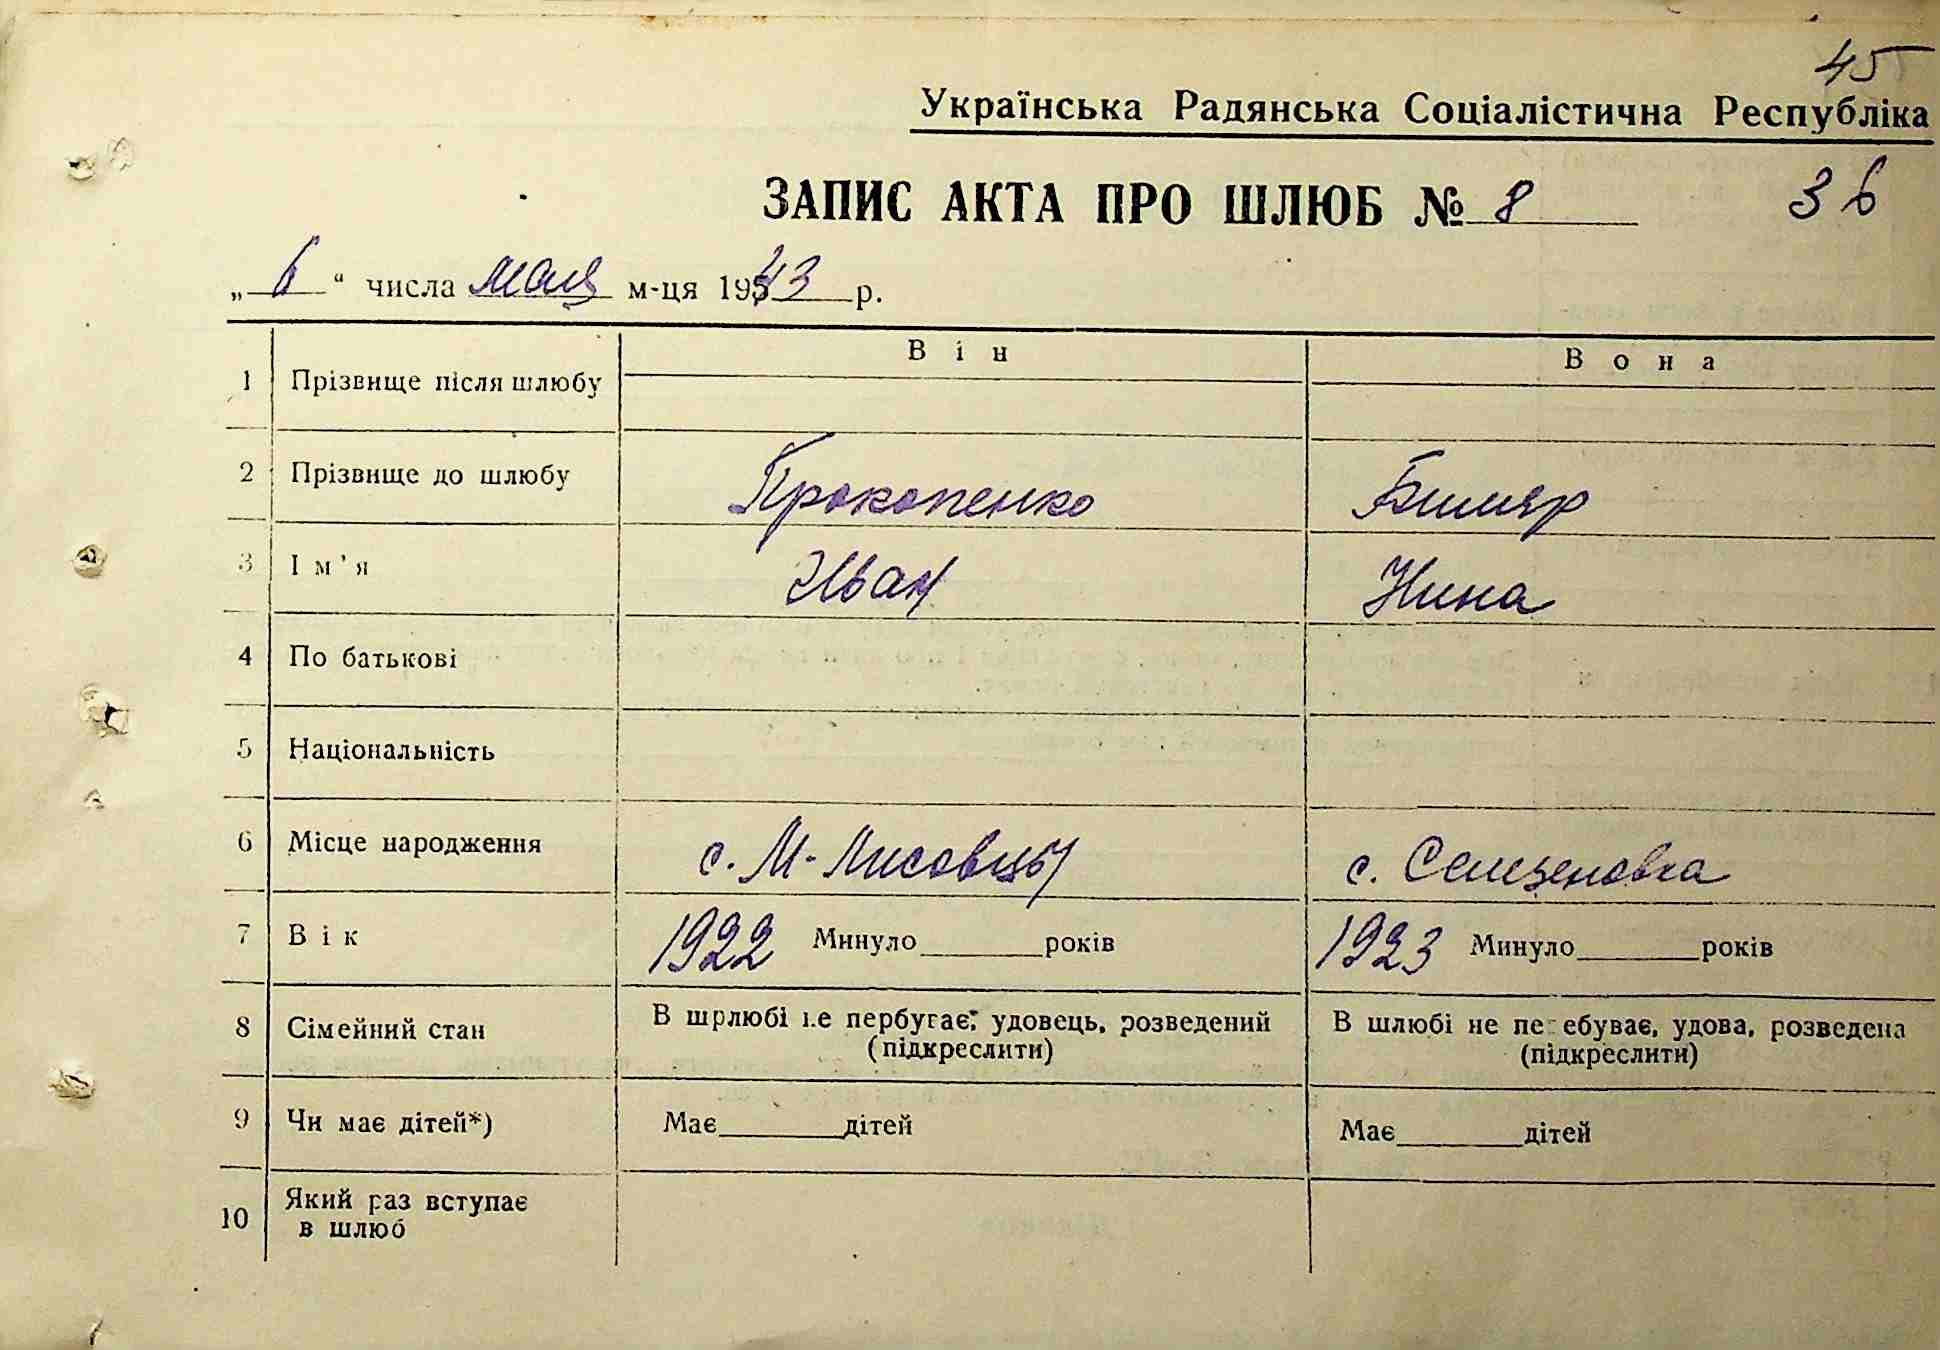 45
Українська Радянська Соціалістична Республіка
ЗАПИС АКТА ПРО ШЛЮБ № 8 36
„ 6 “ числа мая м-ця 1943 р.
Він Вона
1 Прізвище після шлюбу
2 Прізвище до шлюбу Прокопенко
3 Ім'я Иван Нина
4 По батькові
5 Національність
6 Місце народження с. М-Лисовцы с. Семеновка
7 Вік 1922 Минуло років 1923 Минуло років
8 Сімейний стан В шрлюбі не пербуває, удовець, розведений В шлюбі не пе ебуває, удова, розведена
(підкреслити) (підкреслити)
9 Чи має дітей*) Має дітей Має дітей
10 Який раз вступає
в шлюб